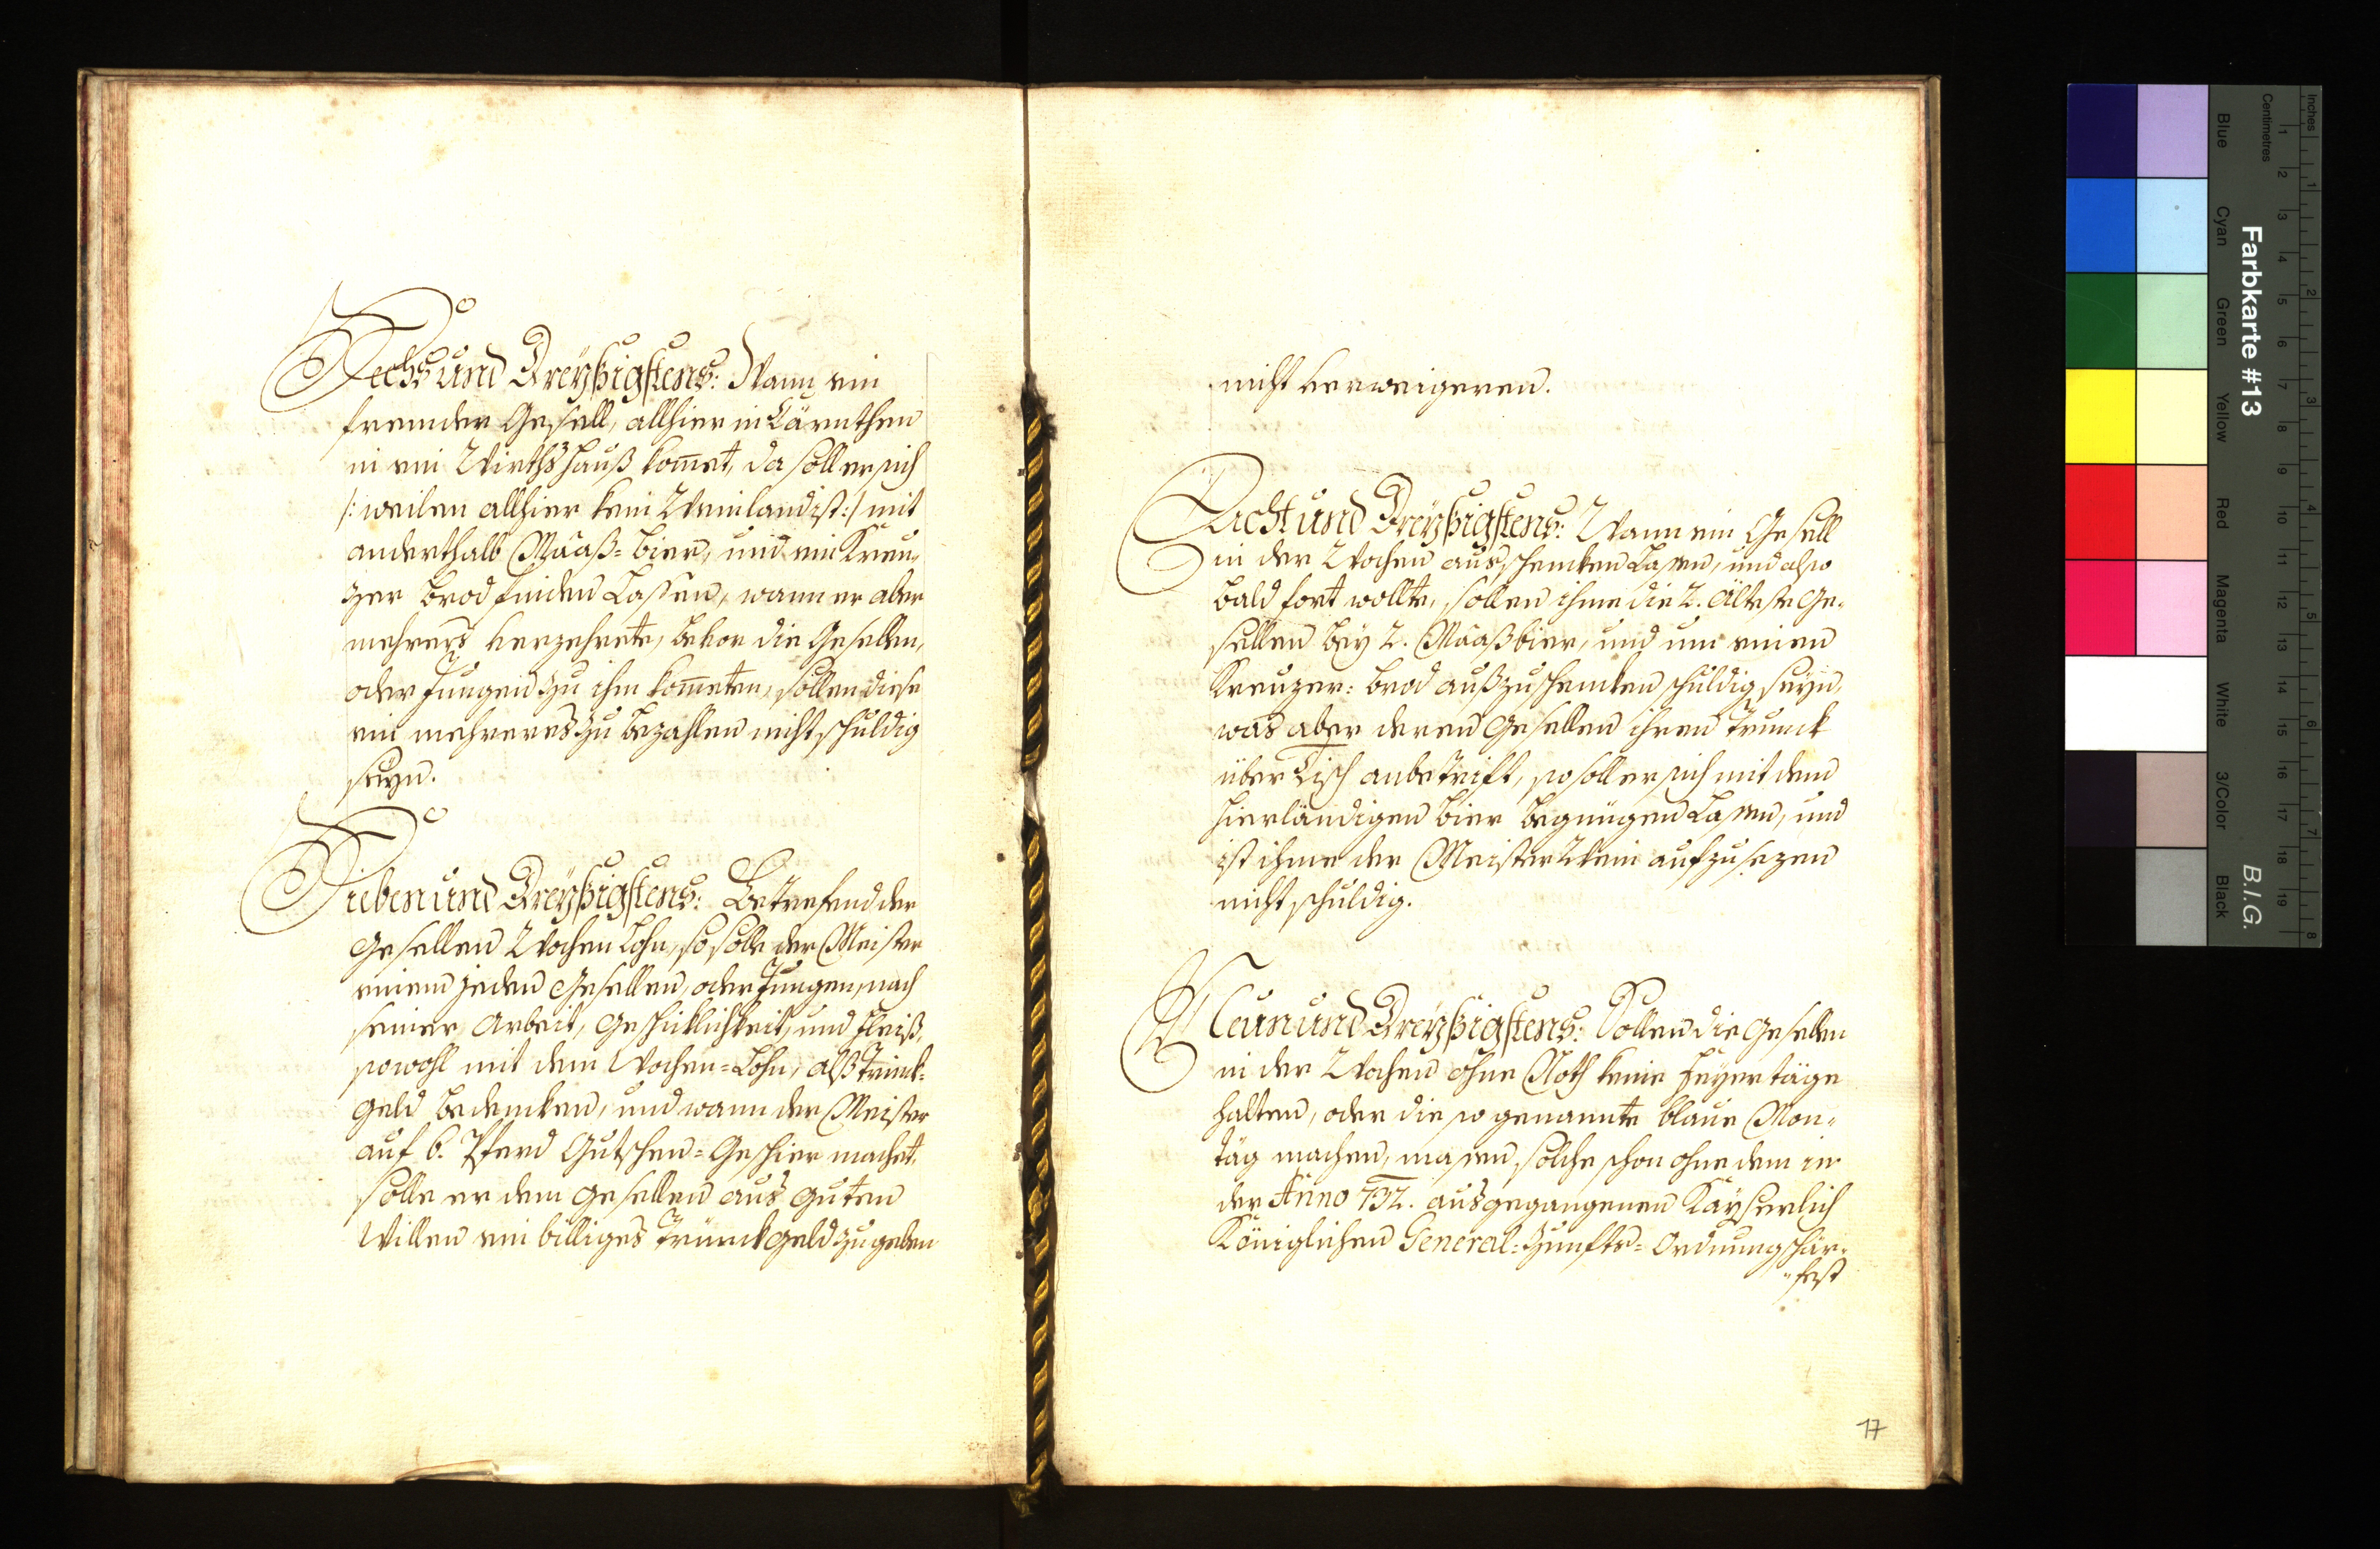 Sechs und Dreyßigstens: Wann ein
fremder Gesell, allhier in Kärnthen
in ein Wirthshauß kom̅et, da soll er sich
/: weilen allhier kein Weinland ist :/ mit
anderthalb Maaß= Bier, und ein Kreu„
zer Brod finden Lassen, wann er aber
mehrers verzehrete, bevor die Gesellen,
oder Jungen zu ihm kom̅eten, sollen diese
ein mehreres zu bezahlen nicht schuldig
seyn.
Sieben und Dreyßigstens: Betrefend der
Gesellen Wochen Lohn, so solle der Meister
einem jeden Gesellen, oder Jungen, nach
seiner Arbeit, Geschicklichkeit, und Fleiß,
sowohl mit dem Wochen=Lohn, alß Trinck=
geld bedencken, und wann der Meister
auf 6. Pferd Gutschen=Geschier machet,
solle er dem Gesellen aus guten
Willen ein billiges Trünckgeld zu geben
nicht verweigeren.
Acht und Dreyßigstens: Wann ein Gesell
in der Wochen ausschencken Lassen, und also
bald fort wollte, sollen ihme die 2. Älteste Ge„
sellen bey 2. Maaß bier, und um einen
Kreuzer: brod außzuschencken schuldig seyn,
was aber deren Gesellen ihren Trunck
über Tisch anbetrift, so soll er sich mit dem
hierländigen Bier begnügen Lassen, und
ist ihme der Meister Wein aufzusezen
nicht schuldig.
Neun und Dreyßigstens: Sollen die Gesellen
in der Wochen ohne Noth keine Feyertäge
halten, oder die so genannte blaue Mon„
täg machen, massen solche schon ohne dem in
der Anno 732. ausgegangenen Kayserlich
Königlichen General=Zunfts=Ordnung schär„
„fest
17
Inches
Centimetres
Farbkarte #13
B.I.G.
Blue
Cyan
Green
Yellow
Red
Magenta
White
3/Color
Black